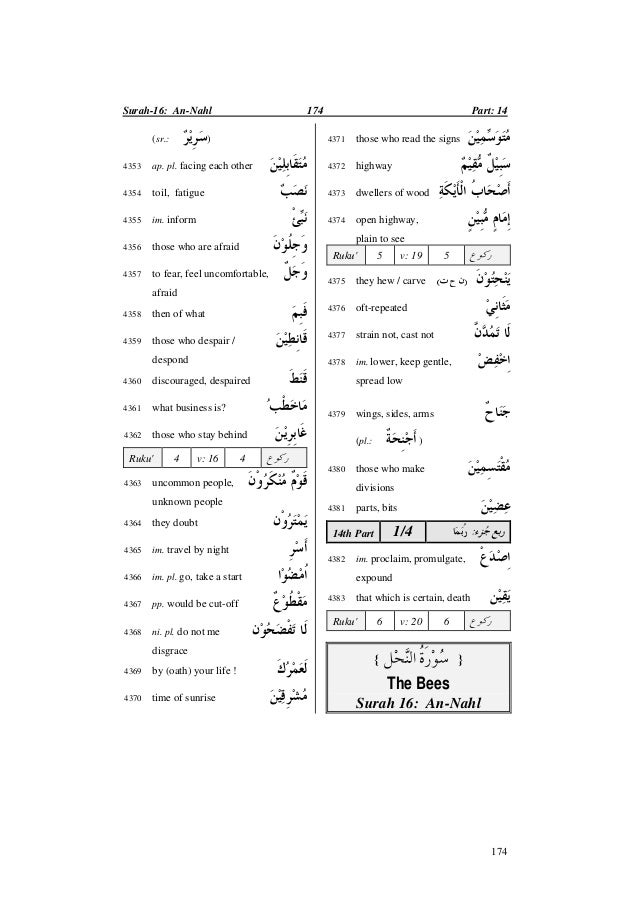 Surah-16: An-Nahl 174 Part: 14
(sr.: سَرِيْرٌ)
4353 ap. pl. facing each other مُتَقَابِلِيْنَ
4354 toil, fatigue نَصَبٌ
4355 im. inform نَبِّئْ
4356 those who are afraid وَجِلُوْنَ
4357 to fear, feel uncomfortable, وَجَلٌ
afraid
4358 then of what فَبِمَ
4359 those who despair / قَانِطِيْنَ
despond
4360 discouraged, despaired قَنَطَ
4361 what business is? مَاخَطْبُ
4362 those who stay behind غَابِرِيْنَ
Ruku' 4 v: 16 4 ركوع
4363 uncommon people, قَوْمٌ مُنْكَرُوْنَ
unknown people
4364 they doubt يَمْتَرُوْنَ
4365 im. travel by night أَسْرِ
4366 im. pl. go, take a start اُمْضُوْا
4367 pp. would be cut-off مَقْطُوْعٌ
4368 ni. pl. do not me لَا تَفْضَحُوْنِ
disgrace
4369 by (oath) your life ! لَعَمْرُكَ
4370 time of sunrise مُشْرِقِيْنَ
4371 those who read the signs مُتَوَسِّمِيْنَ
4372 highway سَبِيْلٌ مُّقِيْمٌ
4373 dwellers of wood أَصْحَابُ الْأَيْكَةِ
4374 open highway, إِمَامٍ مُّبِيْنٍ
plain to see
Ruku' 5 v: 19 5 ركوع
4375 they hew / carve (ن ح ت) يَنْحِتُوْنَ
4376 oft-repeated مَثَانِيْ
4377 strain not, cast not لَا تَمُدَّنَّ
4378 im. lower, keep gentle, اِخْفِضْ
spread low
4379 wings, sides, arms جَنَاحٌ
(pl.: أَجْنِحَةٌ)
4380 those who make مُقْتَسِمِيْنَ
divisions
4381 parts, bits عِضِيْنَ
14th Part 1/4 ربع جُزء: رُبَمَا
4382 im. proclaim, promulgate, اِصْدَعْ
expound
4383 that which is certain, death يَقِيْنُ
Ruku' 6 v: 20 6 ركوع
{ سُوْرَةُ النَّحْلِ }
The Bees
Surah 16: An-Nahl
174